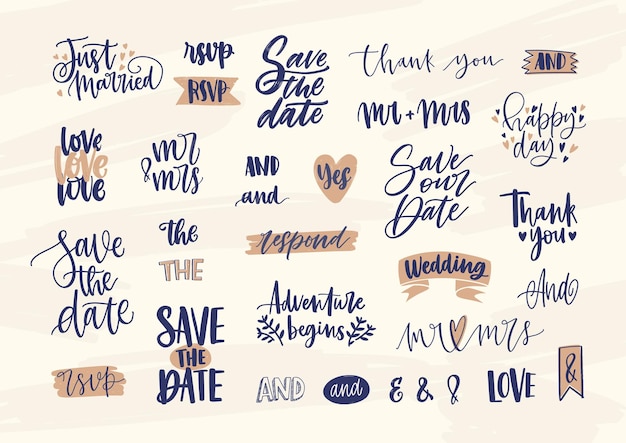 Just
Married
rsvp
RSVP
Save
the
date
thank you
AND
mr + mrs
happy
day
love
love
love
mr
& mrs
AND
and
Yes
Save
our
Date
Thank
you
Save
the
date
the
THE
respond
Wedding
And
Adventure
begins
mr mrs
rsvp
SAVE
THE
DATE
AND
and
& & &
LOVE
&